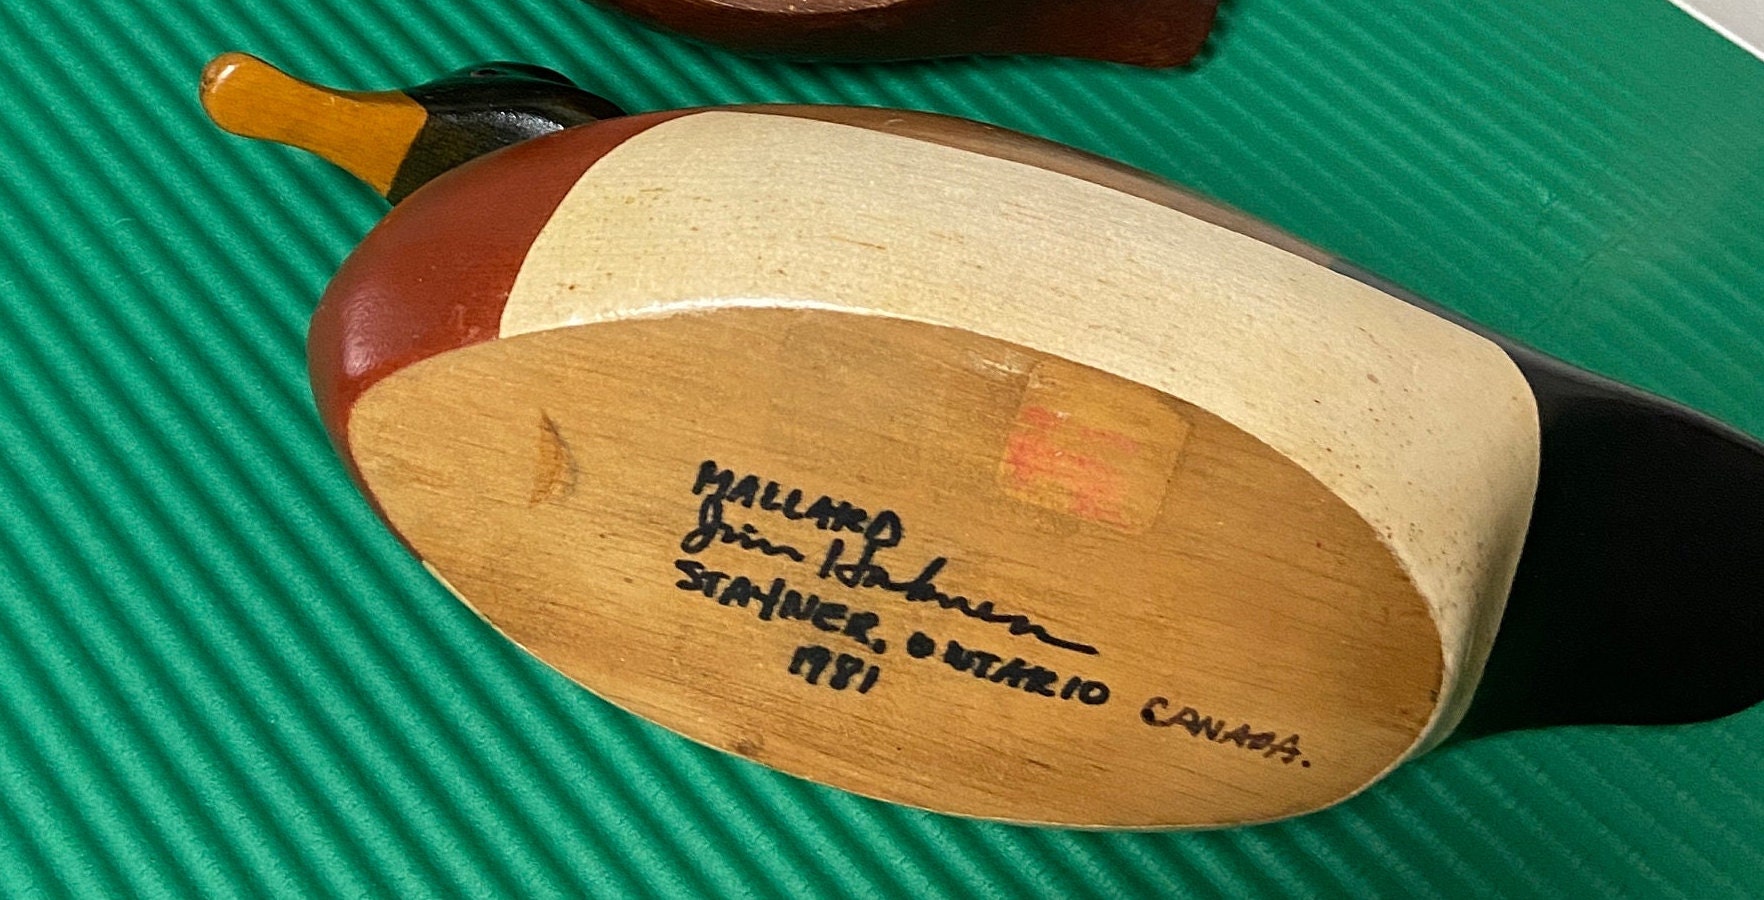 MALLARD
Jim
STAYNER, ONTARIO CANADA.
1981